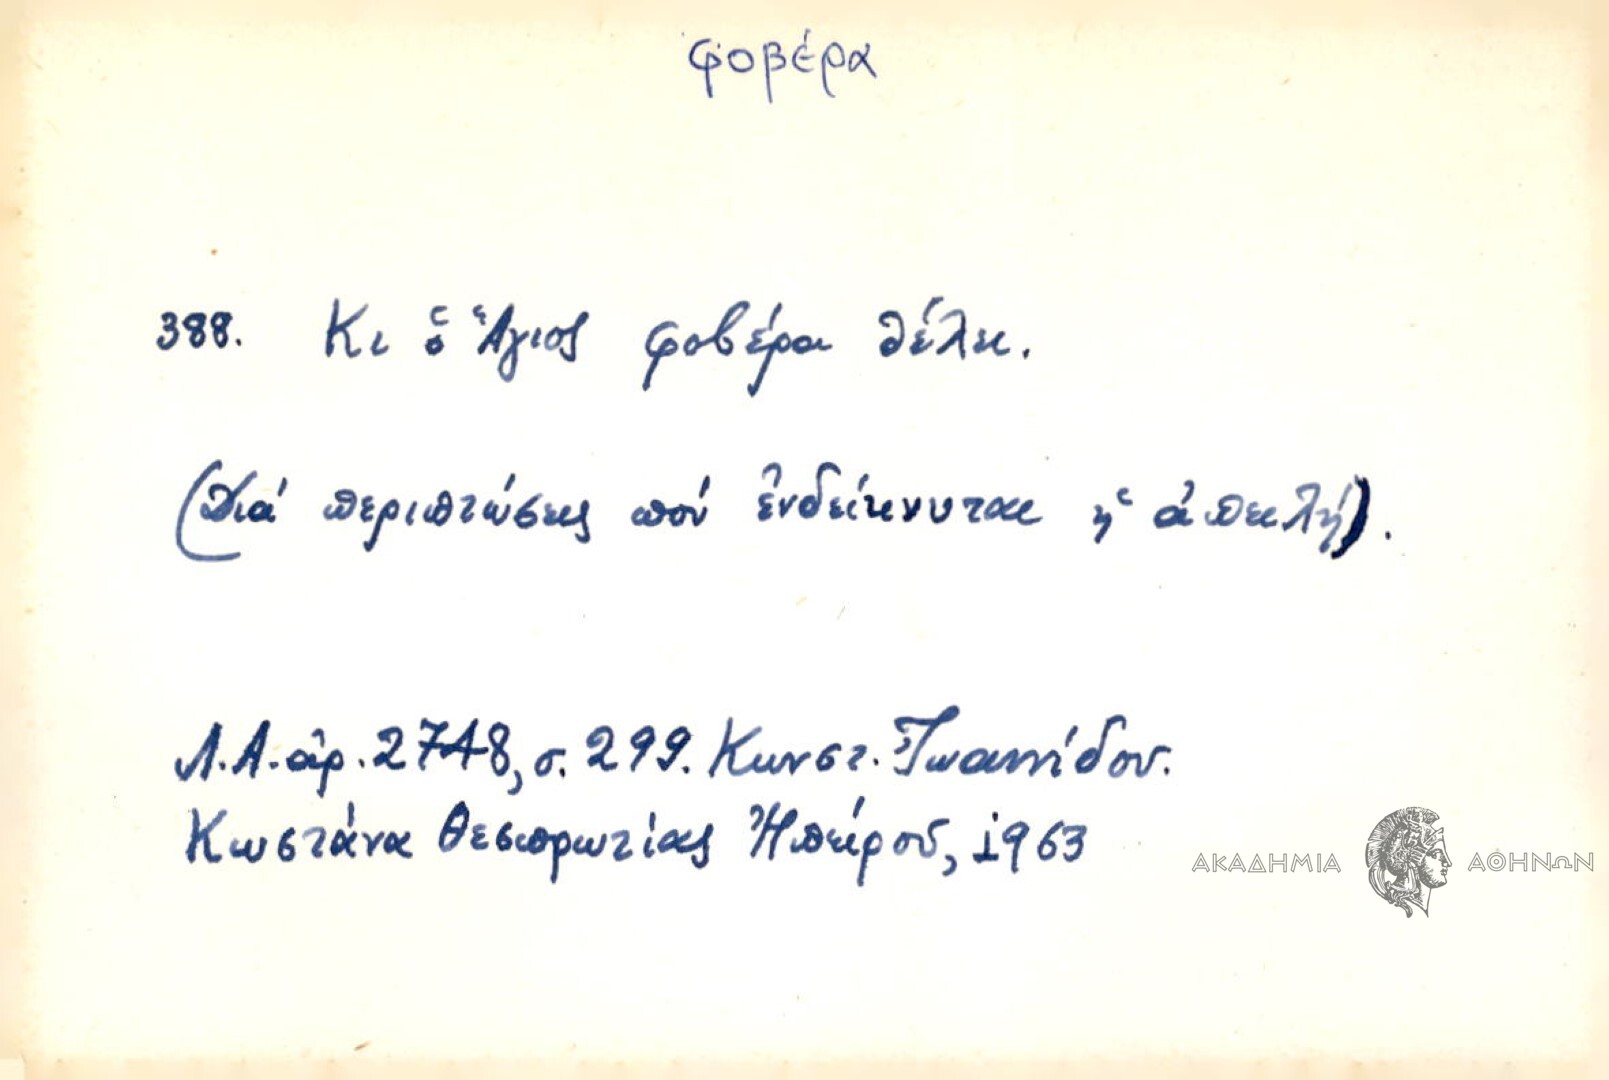 φοβέρα
388. Κι ὁ Ἅγιος φοβέρα θέλει.
(Διά περιπτώσεις πού ἐνδείκνυται ἡ ἀπειλή).
Λ.Α. ἀρ. 2748, σ. 299. Κωνστ. Ἰωαννίδου.
Κωστάνα Θεσπρωτίας Ἠπείρου, 1963
ΑΚΑΔΗΜΙΑ ΑΘΗΝΩΝ